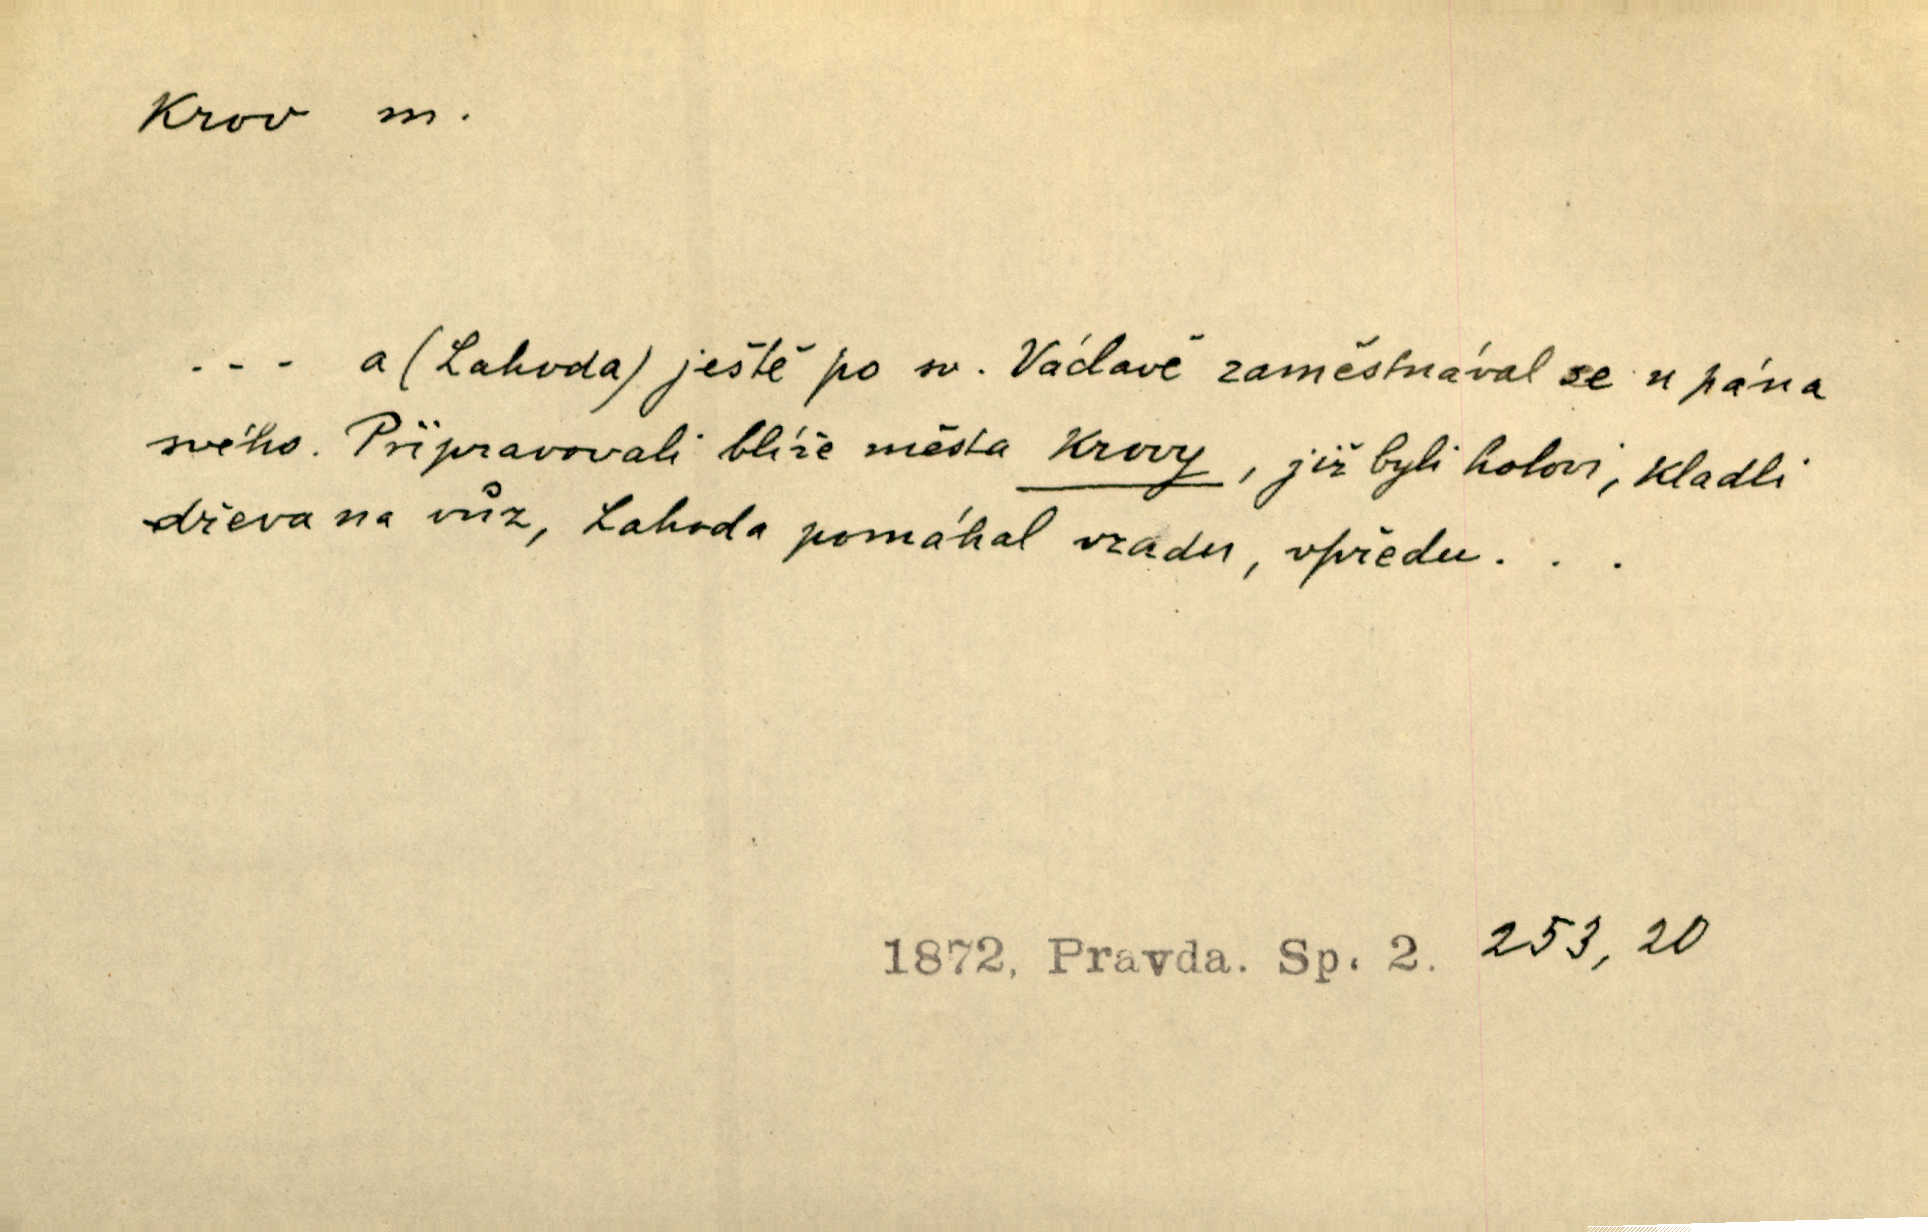 Krov m.
--- a (Lahoda) ještě po sv. Václavě zaměstnával se u pána
svého. Připravovali blíže města Krovy, již byli hotovi, kladli
dřeva na vůz, Lahoda pomáhal vzadu, vpředu...
1872, Pravda. Sp. 2. 253, 20